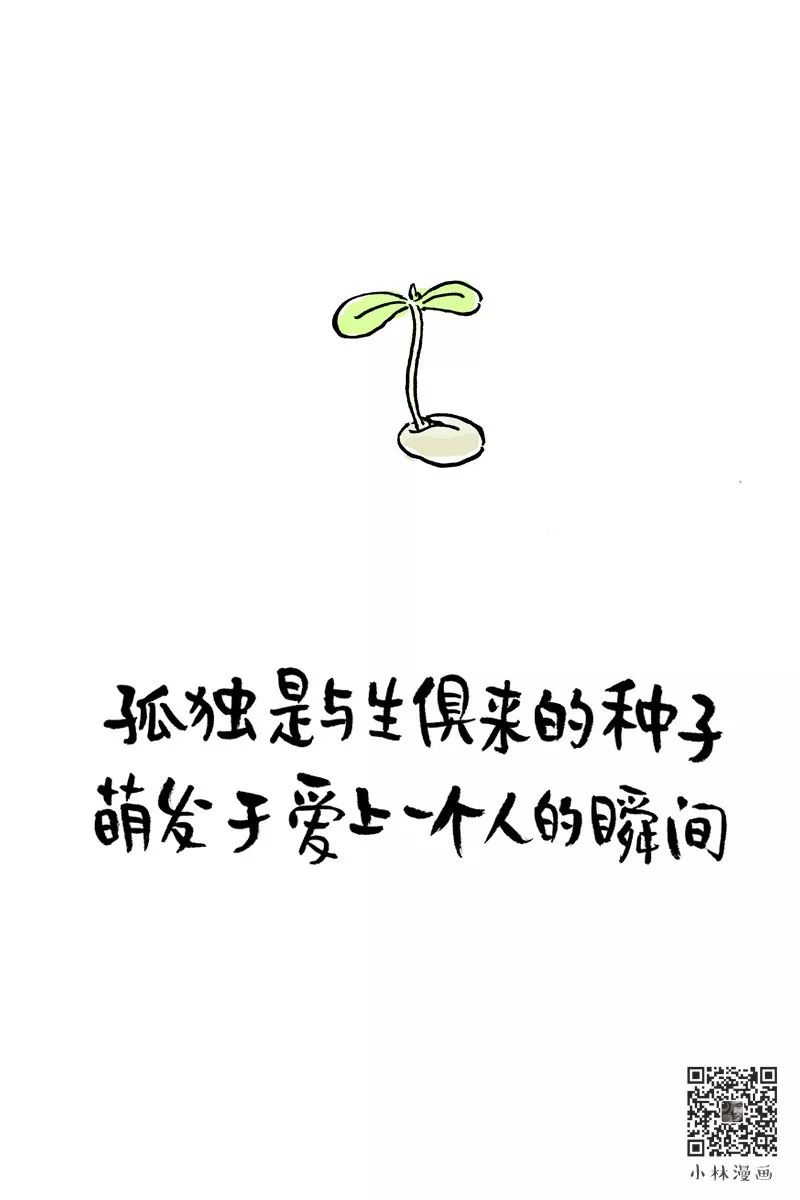 孤独是与生俱来的种子
萌发于爱上一个人的瞬间
小林漫画